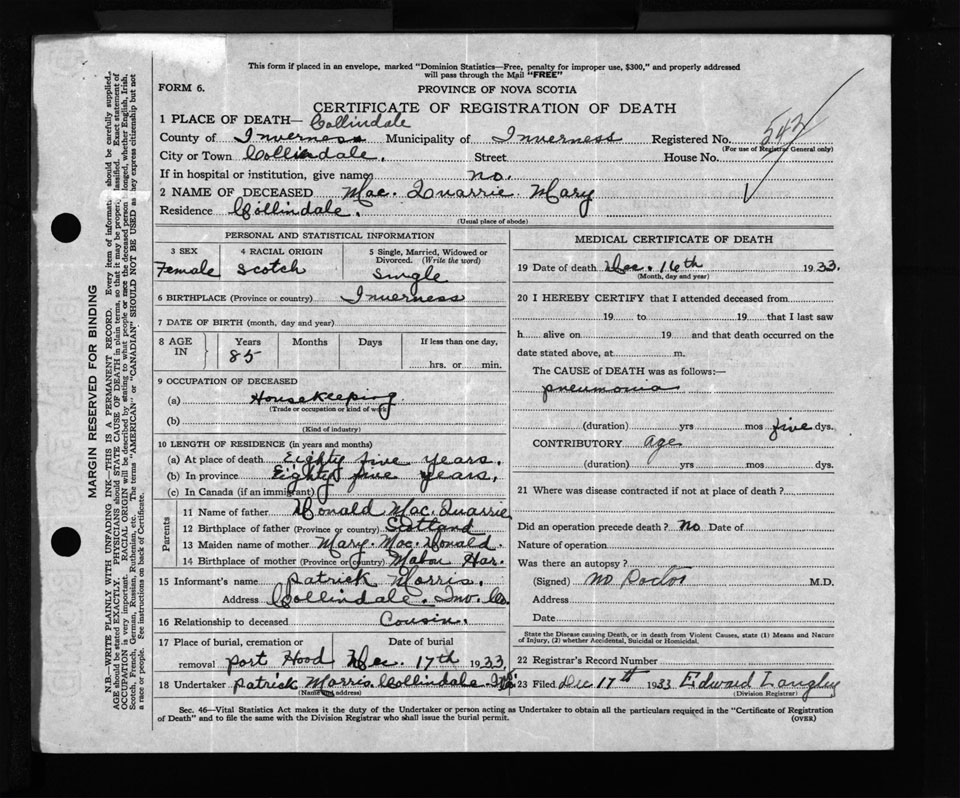 This form if placed in an envelope, marked "Dominion Statistics—Free, penalty for improper use, $300," and properly addressed
will pass through the Mail "FREE"
FORM 6.
PROVINCE OF NOVA SCOTIA
CERTIFICATE OF REGISTRATION OF DEATH
1 PLACE OF DEATH— Collindale
County of Inverness Municipality of Inverness Registered No. 542
(For use of Registrar General only)
City or Town Collindale. Street House No.
If in hospital or institution, give name no.
2 NAME OF DECEASED Mac. Quarrie Mary
Residence Collindale.
(Usual place of abode)
PERSONAL AND STATISTICAL INFORMATION
3 SEX 4 RACIAL ORIGIN 5 Single, Married, Widowed or Divorced. (Write the word)
Female Scotch Single
6 BIRTHPLACE (Province or country) Inverness
7 DATE OF BIRTH (month, day and year)
8 AGE IN Years Months Days If less than one day,
85 hrs. or min.
9 OCCUPATION OF DECEASED
(a) Housekeeping
(Trade or occupation or kind of work)
(b)
(Kind of industry)
10 LENGTH OF RESIDENCE (in years and months)
(a) At place of death Eighty five years.
(b) In province Eighty five years.
(c) In Canada (if an immigrant)
Parents
11 Name of father Donald Mac. Quarrie
12 Birthplace of father (Province or country) Scotland
13 Maiden name of mother Mary. Mac. Donald.
14 Birthplace of mother (Province or country) Mabou Har.
15 Informant's name Patrick Morris.
Address Collindale. Inv. Co.
16 Relationship to deceased Cousin.
17 Place of burial, cremation or removal Date of burial
Port Hood Dec. 17th 1933.
18 Undertaker Patrick Morris. Collindale.
(Name and address)
MEDICAL CERTIFICATE OF DEATH
19 Date of death Dec. 16th 1933.
(Month, day and year)
20 I HEREBY CERTIFY that I attended deceased from
19 to 19 that I last saw
h alive on 19 and that death occurred on the
date stated above, at m.
The CAUSE of DEATH was as follows:—
pneumonia
(duration) yrs mos five dys.
CONTRIBUTORY age
(duration) yrs mos dys.
21 Where was disease contracted if not at place of death?
Did an operation precede death? no Date of
Nature of operation
Was there an autopsy?
(Signed) no Doctor M.D.
Address
Date
State the Disease causing Death, or in death from Violent Causes, state (1) Means and Nature
of Injury, (2) whether Accidental, Suicidal or Homicidal.
22 Registrar's Record Number
23 Filed Dec 17th 1933 Edward Langley
(Division Registrar)
Sec. 46—Vital Statistics Act makes it the duty of the Undertaker or person acting as Undertaker to obtain all the particulars required in the "Certificate of Registration
of Death" and to file the same with the Division Registrar who shall issue the burial permit.
(OVER)
MARGIN RESERVED FOR BINDING
N.B.—WRITE PLAINLY WITH UNFADING INK—THIS IS A PERMANENT RECORD. Every item of information should be carefully supplied.
AGE should be stated EXACTLY. PHYSICIANS should STATE CAUSE OF DEATH in plain terms, so that it may be properly classified. Exact statement of
OCCUPATION is very important. RACIAL ORIGIN will be described by stating to what people or race the deceased person belonged, whether English, Irish,
Scotch, French, German, Russian, Ruthenian, etc. The terms "AMERICAN" or "CANADIAN" SHOULD NOT BE USED as they express citizenship but not
a race or people. See instructions on back of Certificate.